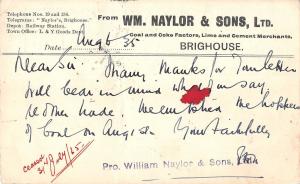 Telephone Nos. 19 and 196.
Telegrams: "Naylor's, Brighouse."
Depot: Railway Station.
Town Office: L & Y (Goods Dept)
From WM. NAYLOR & SONS, LTD.
Coal and Coke Factors, Lime and Cement Merchants,
BRIGHOUSE.
Date Aug 6 35
Dear Sir Many thanks for your letter
will bear in mind what you say
re other trade.
of coal on Aug 1st. Yours faithfully
Pro. William Naylor & Sons,